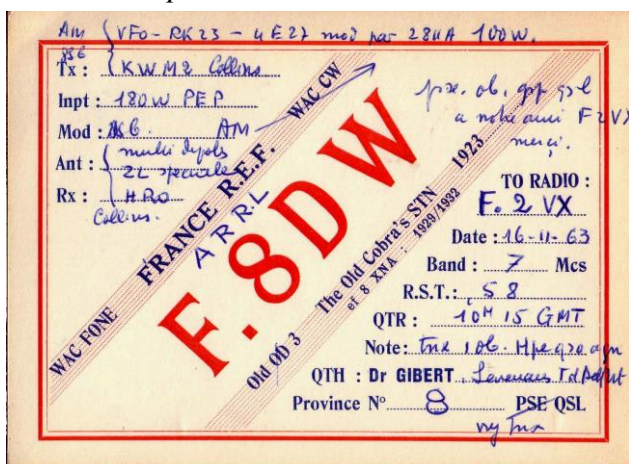 Am VFO - RK23 - 4E27 mod par 28HA 100W.
Tx : KWM2 Collins
Inpt : 180W PEP
Mod : AM
Ant : multi dipole
2L speciale
Rx : HRO
Collins.
WAC FONE FRANCE R.E.F. WAC CW
ARRL
F.8DW
Old OD 3 The Old Cobra's STN 1923
et 8 XNA : 1929/1932
pse. ob. qsl
a notre ami F2VX
merci.
TO RADIO :
F. 2 VX
Date : 16-11-63
Band : 7 Mcs
R.S.T. : 58
QTR : 10H 15 GMT
Note : tnx
QTH : Dr GIBERT
Province N° 8 PSE QSL
tnx